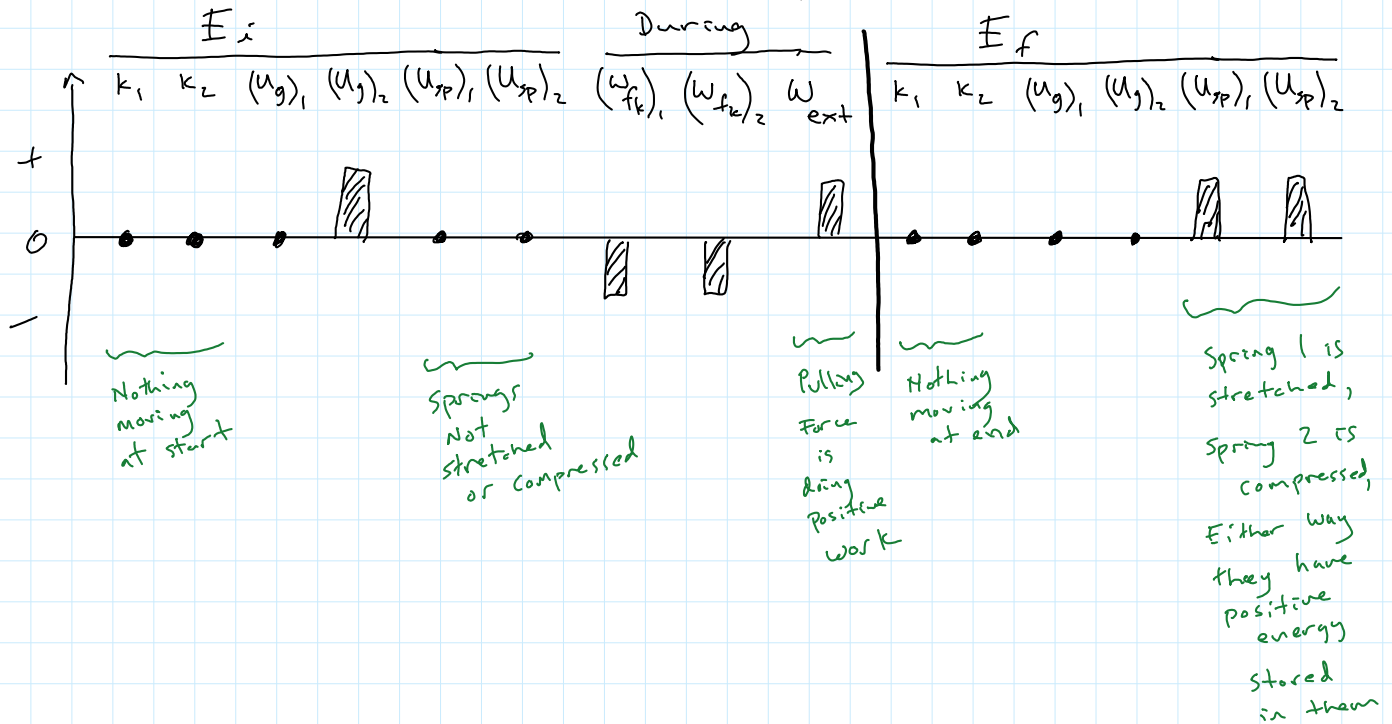 E_i During E_f
K_1 K_2 (U_g)_1 (U_g)_2 (U_sp)_1 (U_sp)_2 (W_fk)_1 (W_fk)_2 W_ext K_1 K_2 (U_g)_1 (U_g)_2 (U_sp)_1 (U_sp)_2
+
0
-
Nothing
moving
at start
Springs
Not
stretched
or compressed
Pulling
Force
is
doing
positive
work
Nothing
moving
at end
Spring 1 is
stretched,
Spring 2 is
compressed,
Either way
they have
positive
energy
stored
in them